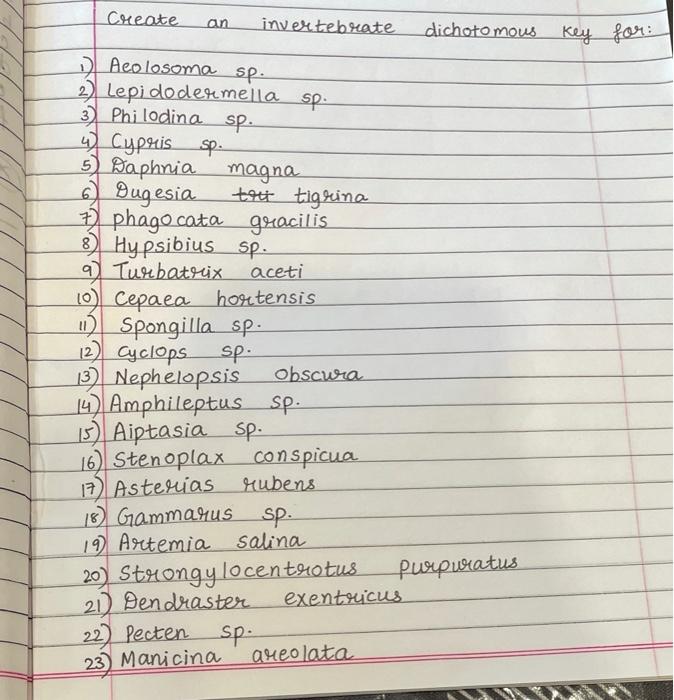 Create an invertebrate dichotomous key for:
1) Aeolosoma sp.
2) Lepidodermella sp.
3) Philodina sp.
4) Cypris sp.
5) Daphnia magna
6) Dugesia tigrina
7) phagocata gracilis
8) Hypsibius sp.
9) Turbatrix aceti
10) Cepaea hortensis
11) Spongilla sp.
12) Cyclops sp.
13) Nephelopsis obscura
14) Amphileptus sp.
15) Aiptasia sp.
16) Stenoplax conspicua
17) Asterias rubens
18) Gammarus sp.
19) Artemia salina
20) Strongylocentrotus purpuratus
21) Dendraster exentricus
22) Pecten sp.
23) Manicina areolata